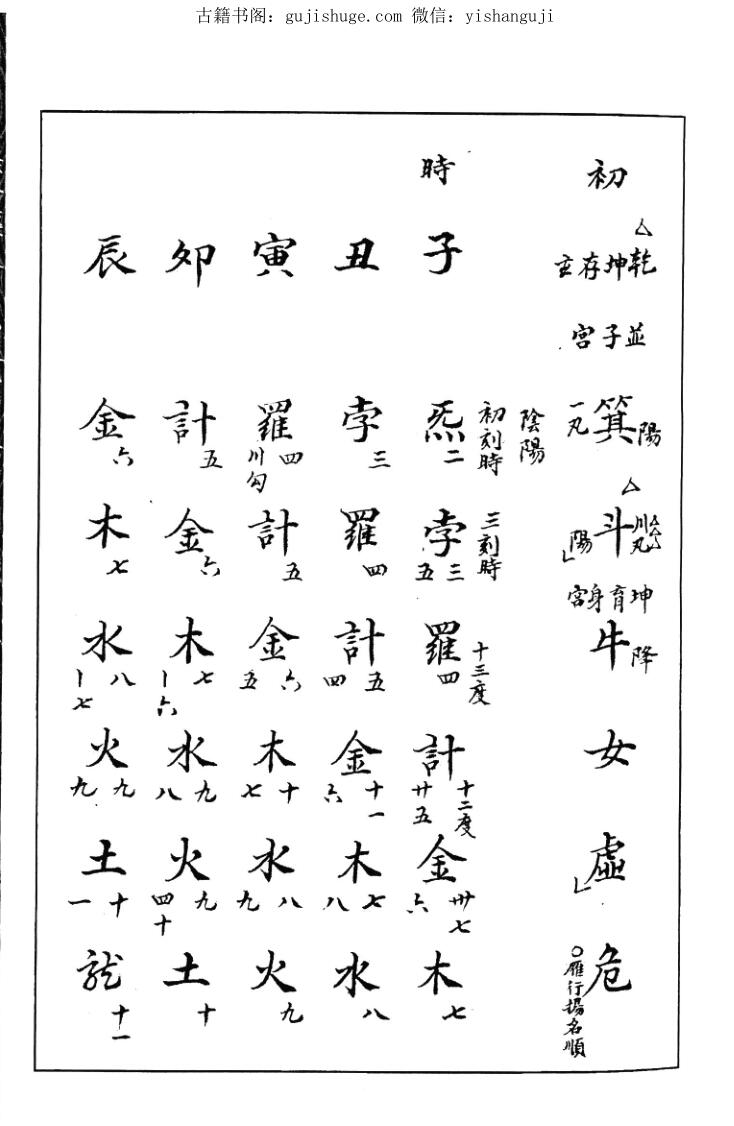 古籍书阁：gujishuge.com 微信：yishanguji
初
乾坤存主
並子宮
箕 陽 一丸
斗 川丸 陽
坤育身宮
牛 降
女
虛
危 雁行揚名順
陰陽
初刻時
三刻時
十三度
十二度
時
子
炁 二
孛 三 五
羅 四
計 廿五
金 卅七 六
木 七
丑
孛 三
羅 四
計 五 四
金 十一 六
木 七 八
水 八
寅
羅 四 川勾
計 五
金 六 五
木 十 七
水 八 九
火 九
卯
計 五
金 六
木 七 六
水 九 八
火 九 四十
土 十
辰
金 六
木 七
水 八 七
火 九 九
土 十 一
龍 十一